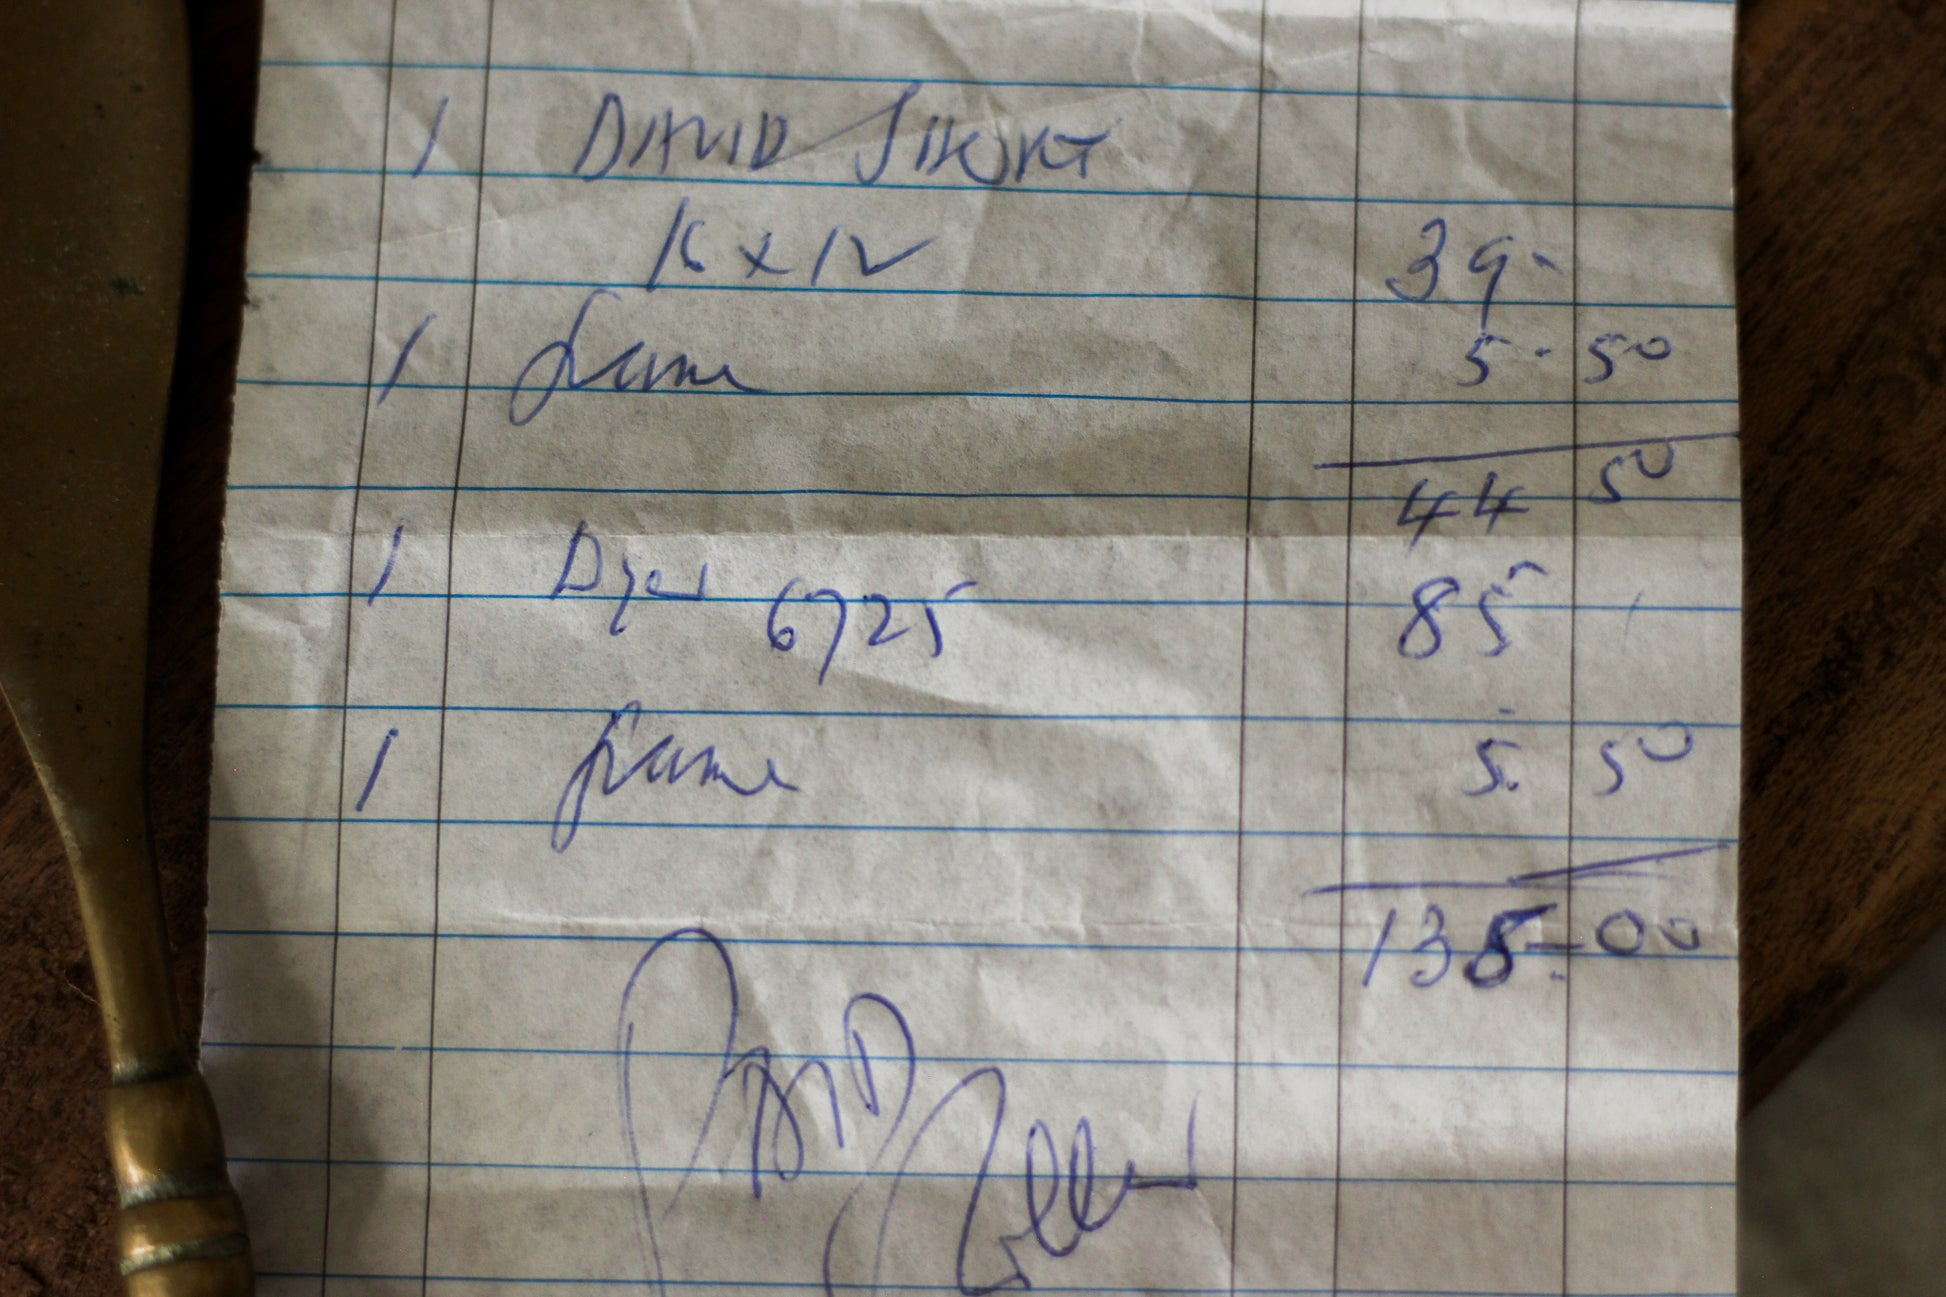 1 DAVID SHORT
16 x 12 39-
1 frame 5-50
44 50
1 Dyer 6725 85
1 frame 5. 50
135-00